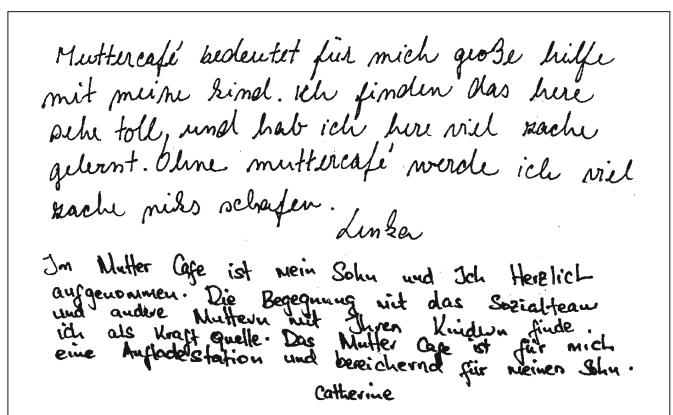 Muttercafé bedeutet für mich große hilfe
mit meine kind. ich finden das here
sehe toll, und hab ich here viel sache
gelernt. Ohne muttercafé werde ich viel
sache niks schafen.
Lenka
Im Mutter Cafe ist mein Sohn und Ich Herzlich
aufgenommen. Die Begegnung mit das Sozialteam
und andere Muttern mit Ihren Kindern finde
ich als Kraft quelle. Das Mutter Cafe ist für mich
eine Aufladestation und bereichernd für meinen Sohn.
Catherine